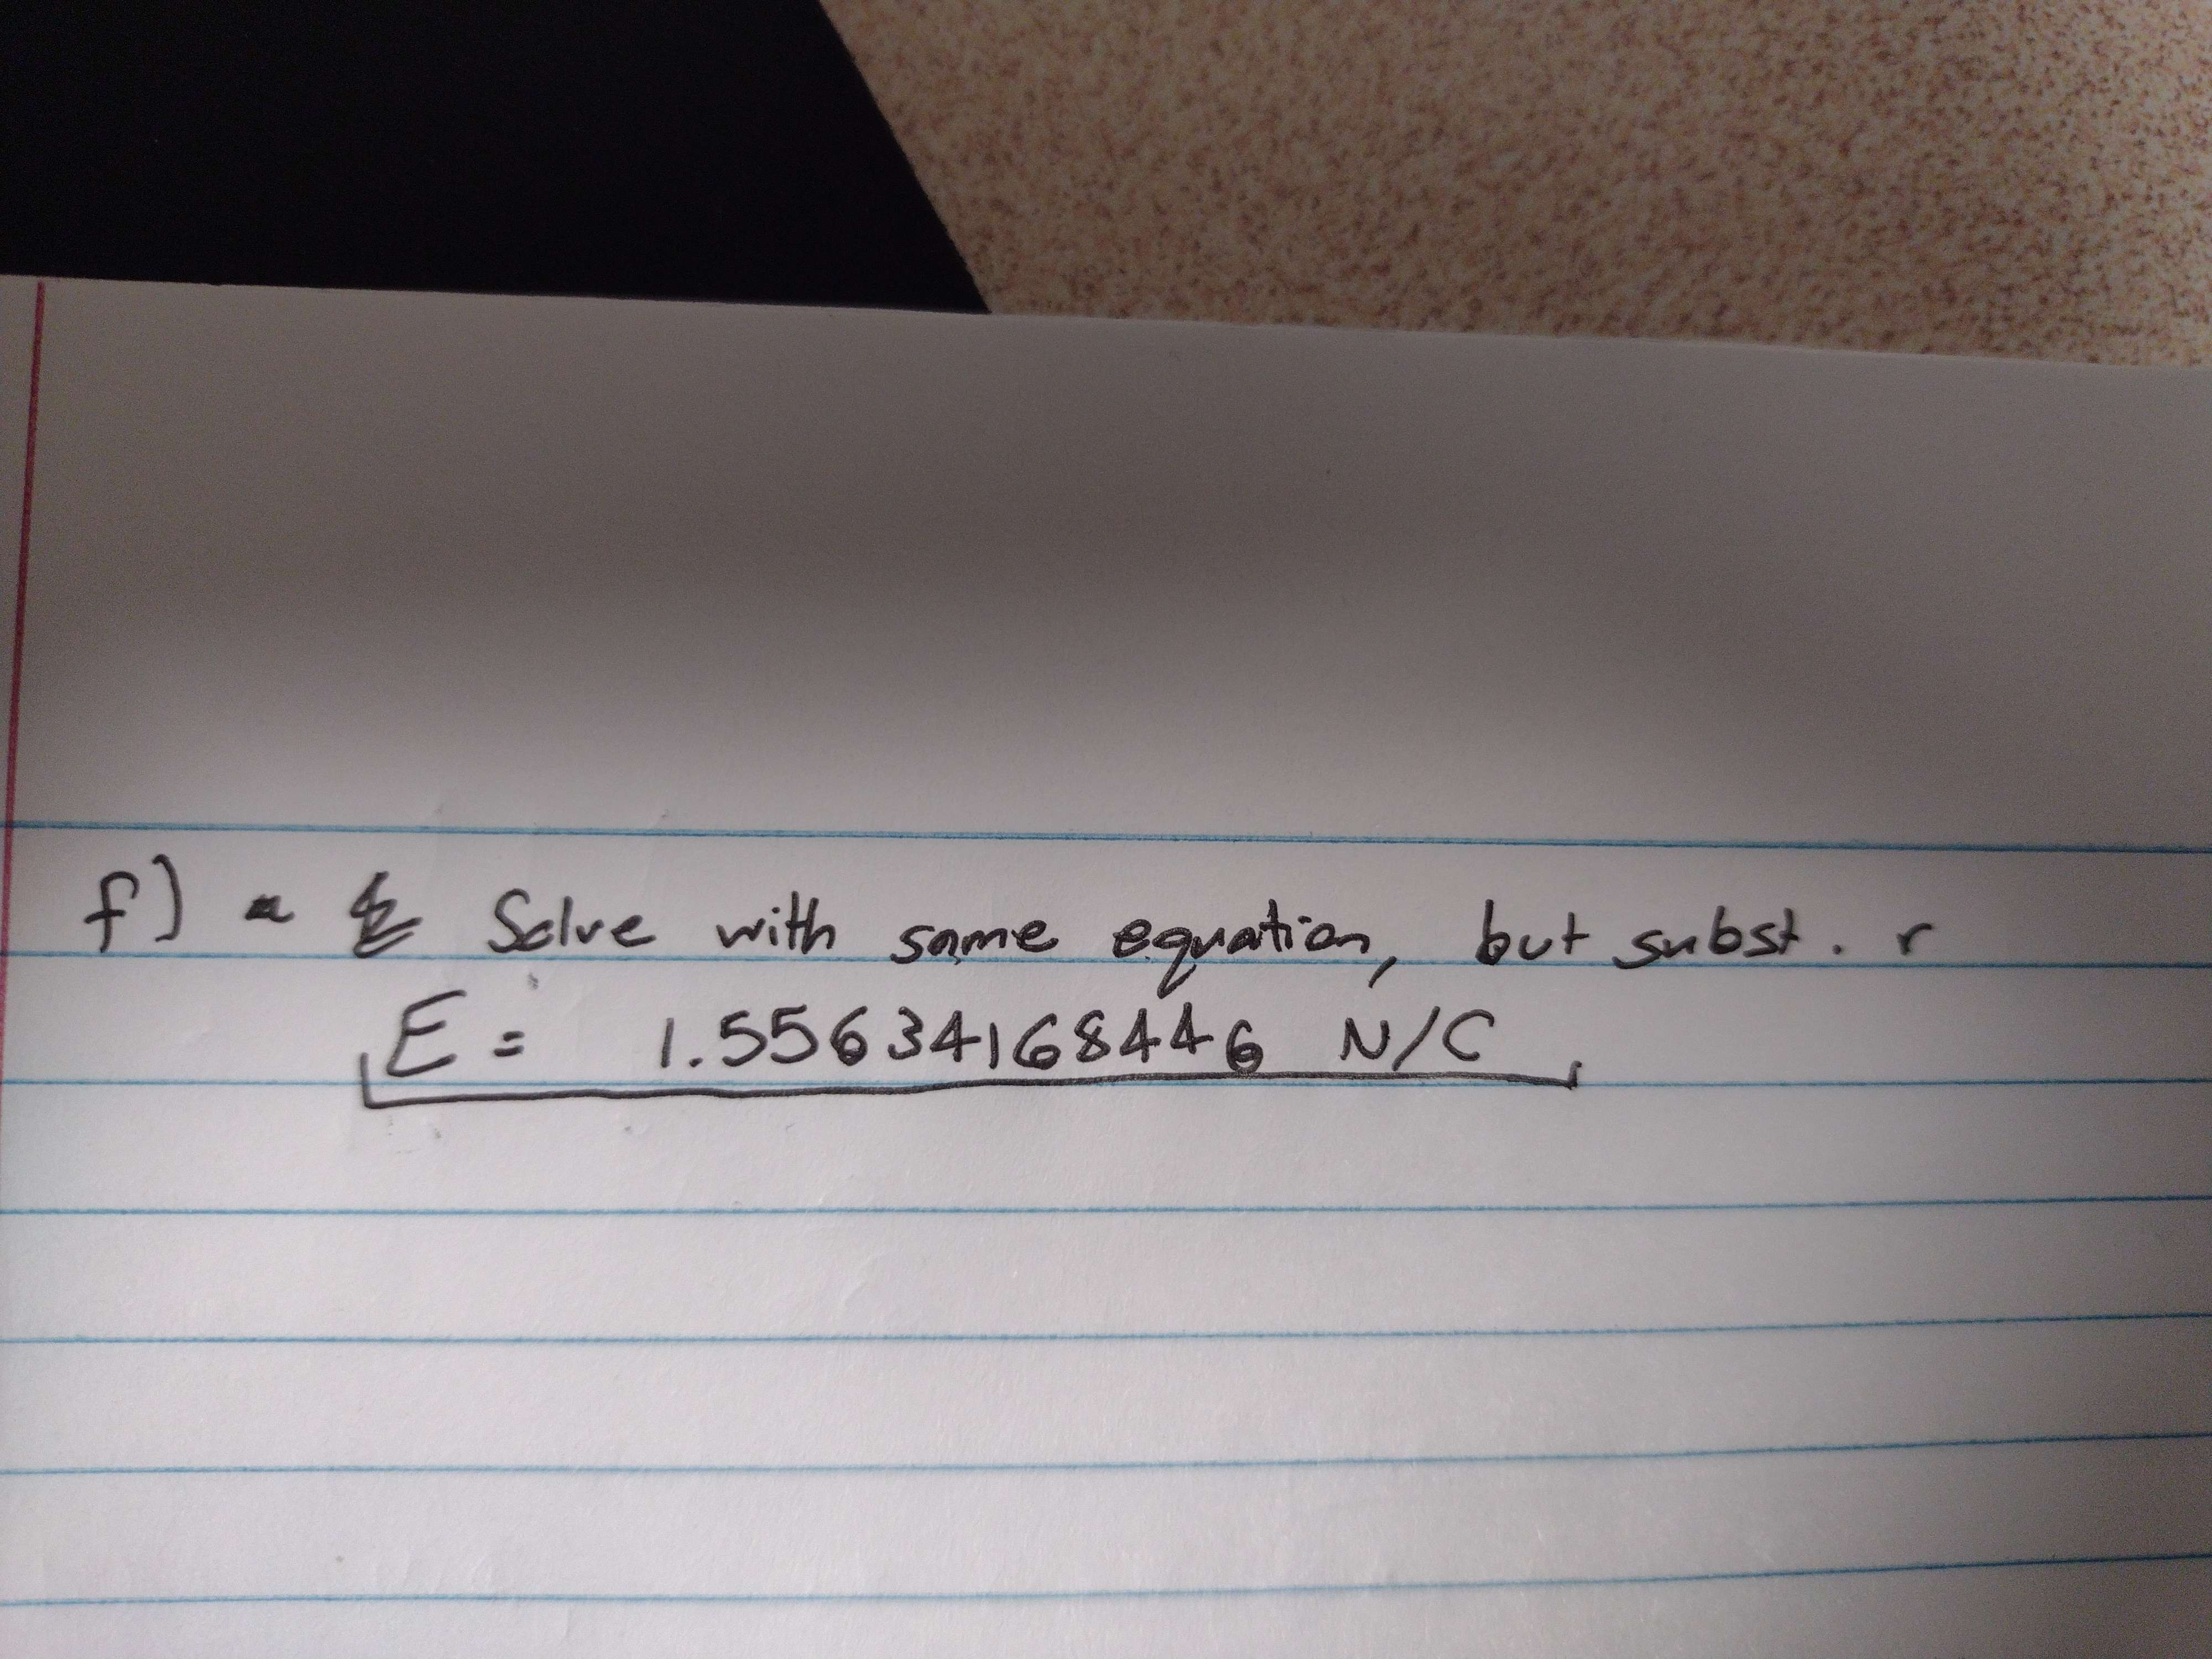 f) Solve with same equation, but subst. r
E = 1.55634168446 N/C